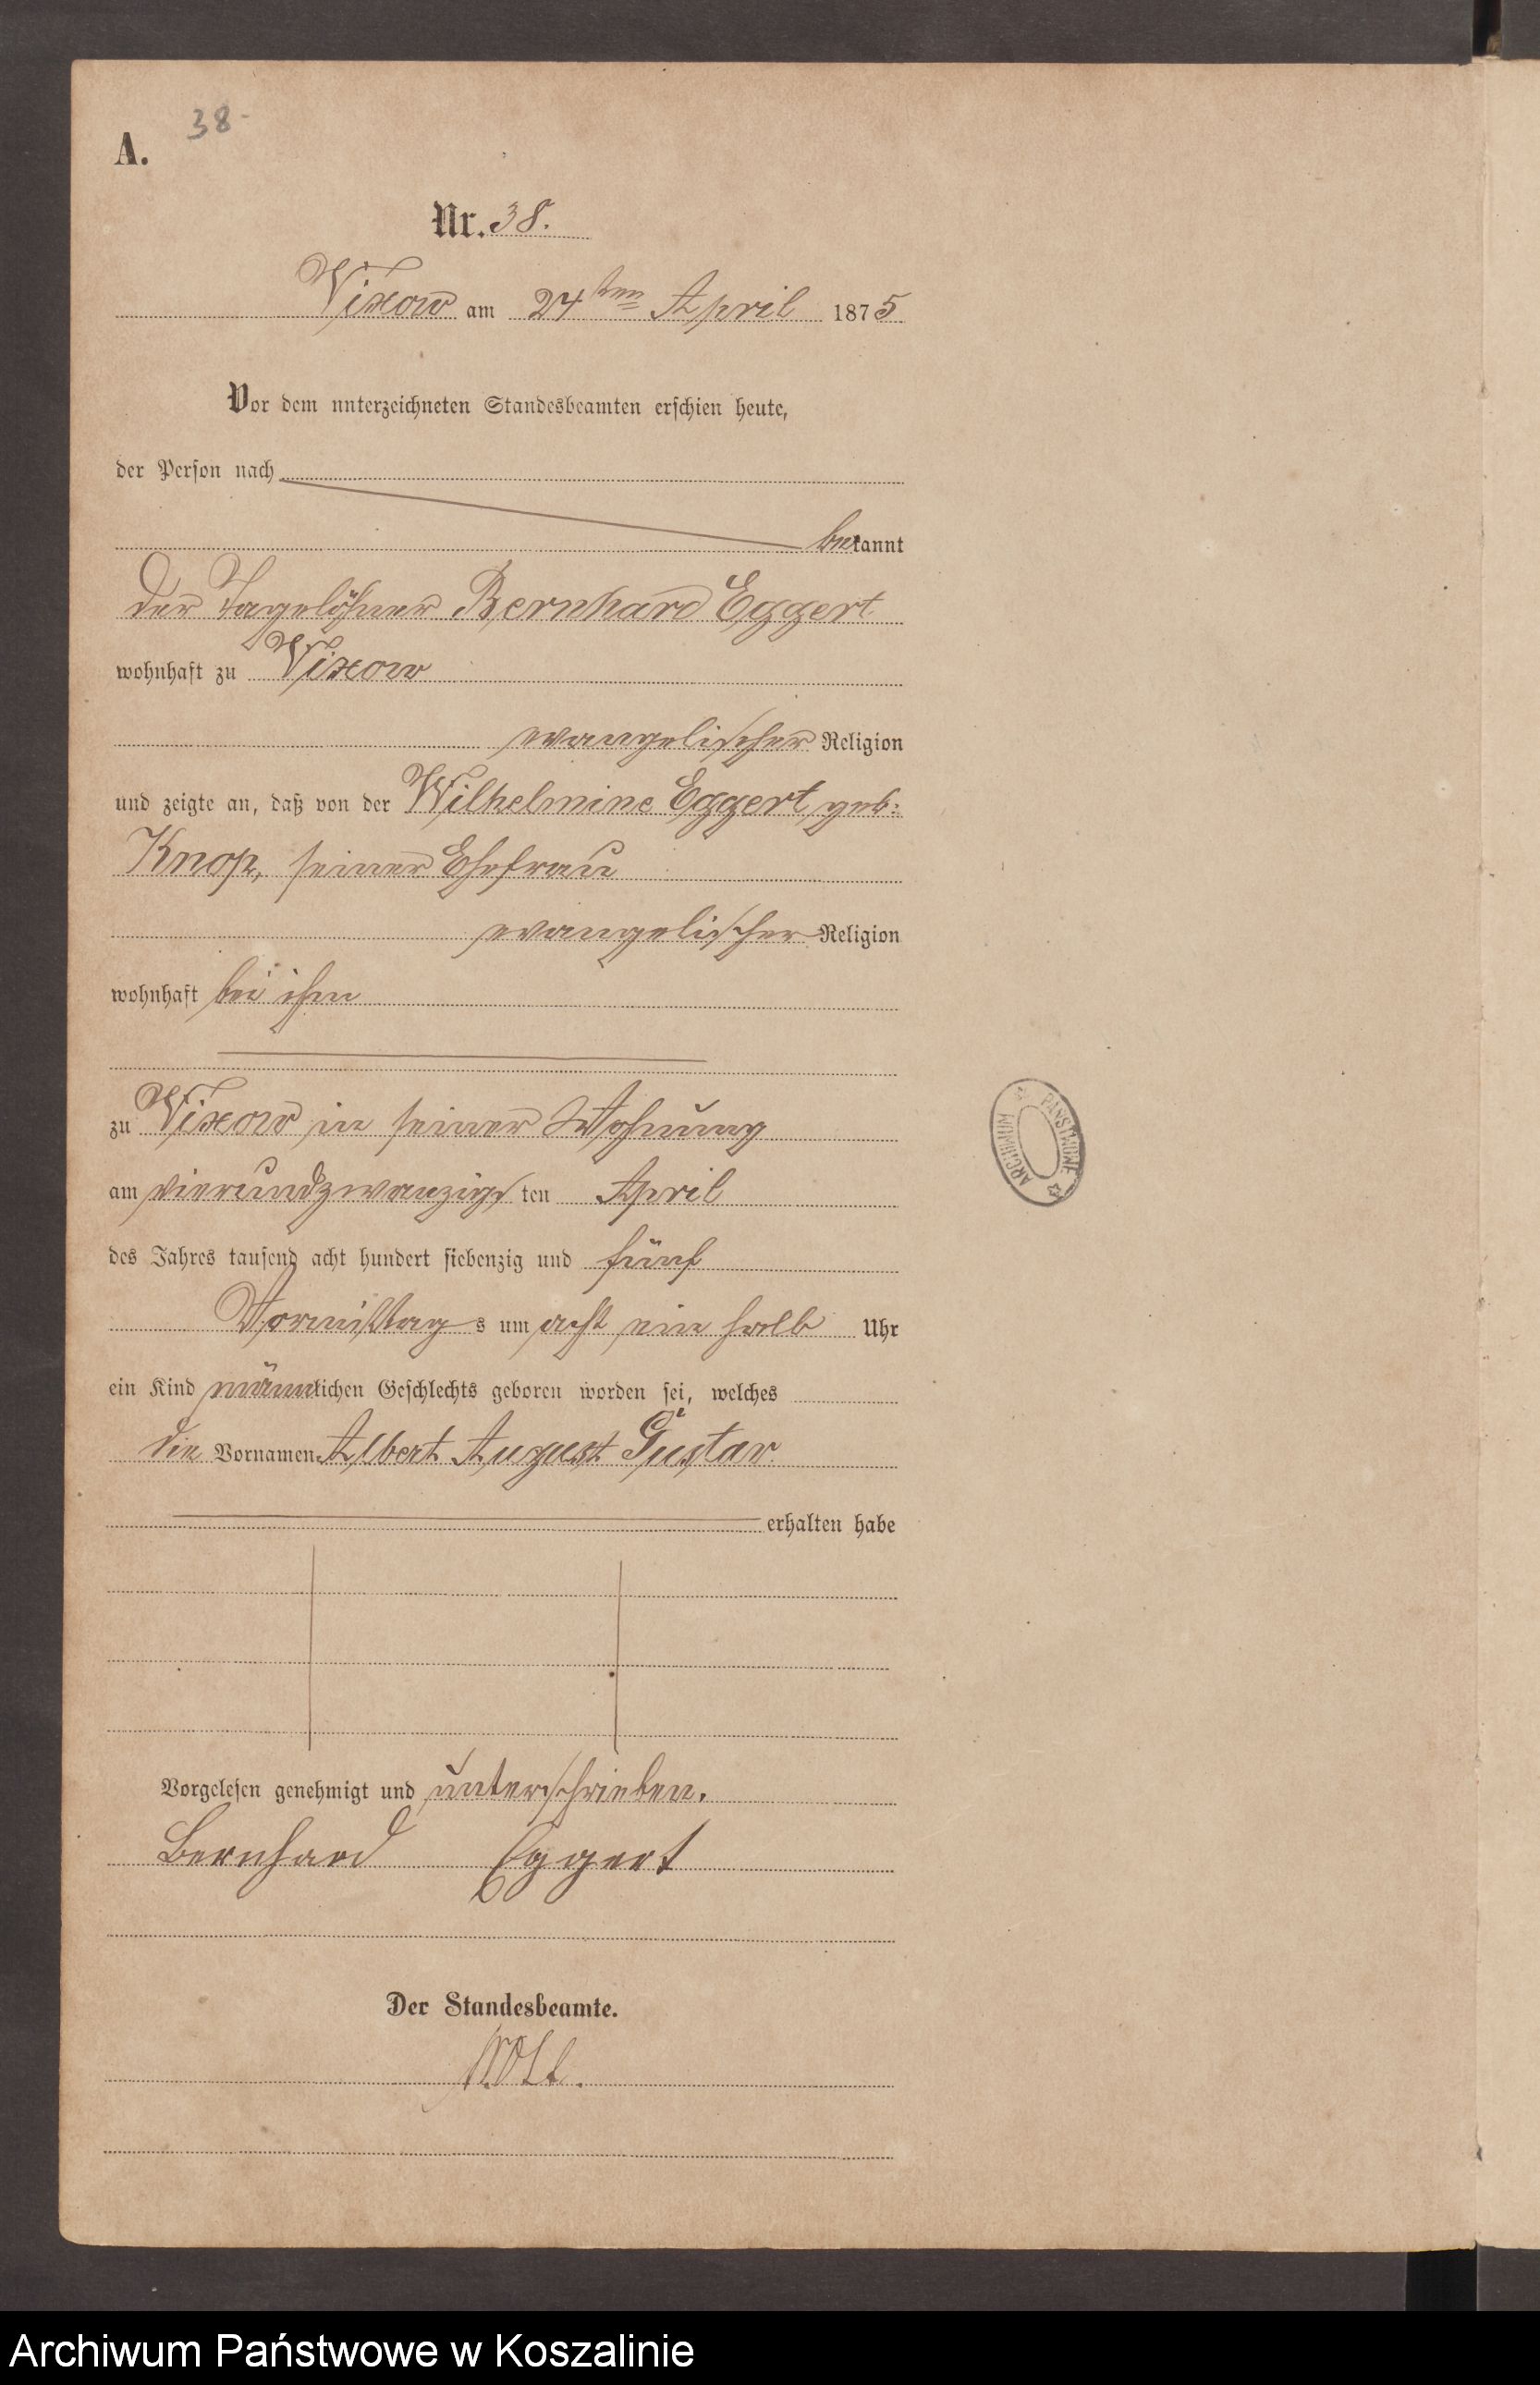 38-
A.
Nr. 38.
Vixow am 24ten April 1875
Vor dem unterzeichneten Standesbeamten erschien heute,
der Person nach
bekannt
der Tagelöhner Bernhard Eggert
wohnhaft zu Vixow
evangelischer Religion
und zeigte an, daß von der Wilhelmine Eggert, geb:
Knop, seiner Ehefrau
evangelischer Religion
wohnhaft bei ihm
zu Vixow in seiner Wohnung
am vierundzwanzigsten April
des Jahres tausend acht hundert siebenzig und fünf
Vormittags um acht ein halb Uhr
ein Kind männlichen Geschlechts geboren worden sei, welches
die Vornamen Albert August Gustav
erhalten habe
Vorgelesen genehmigt und unterschrieben.
Bernhard Eggert
Der Standesbeamte.
ARCHIWUM PAŃSTWOWE
Archiwum Państwowe w Koszalinie